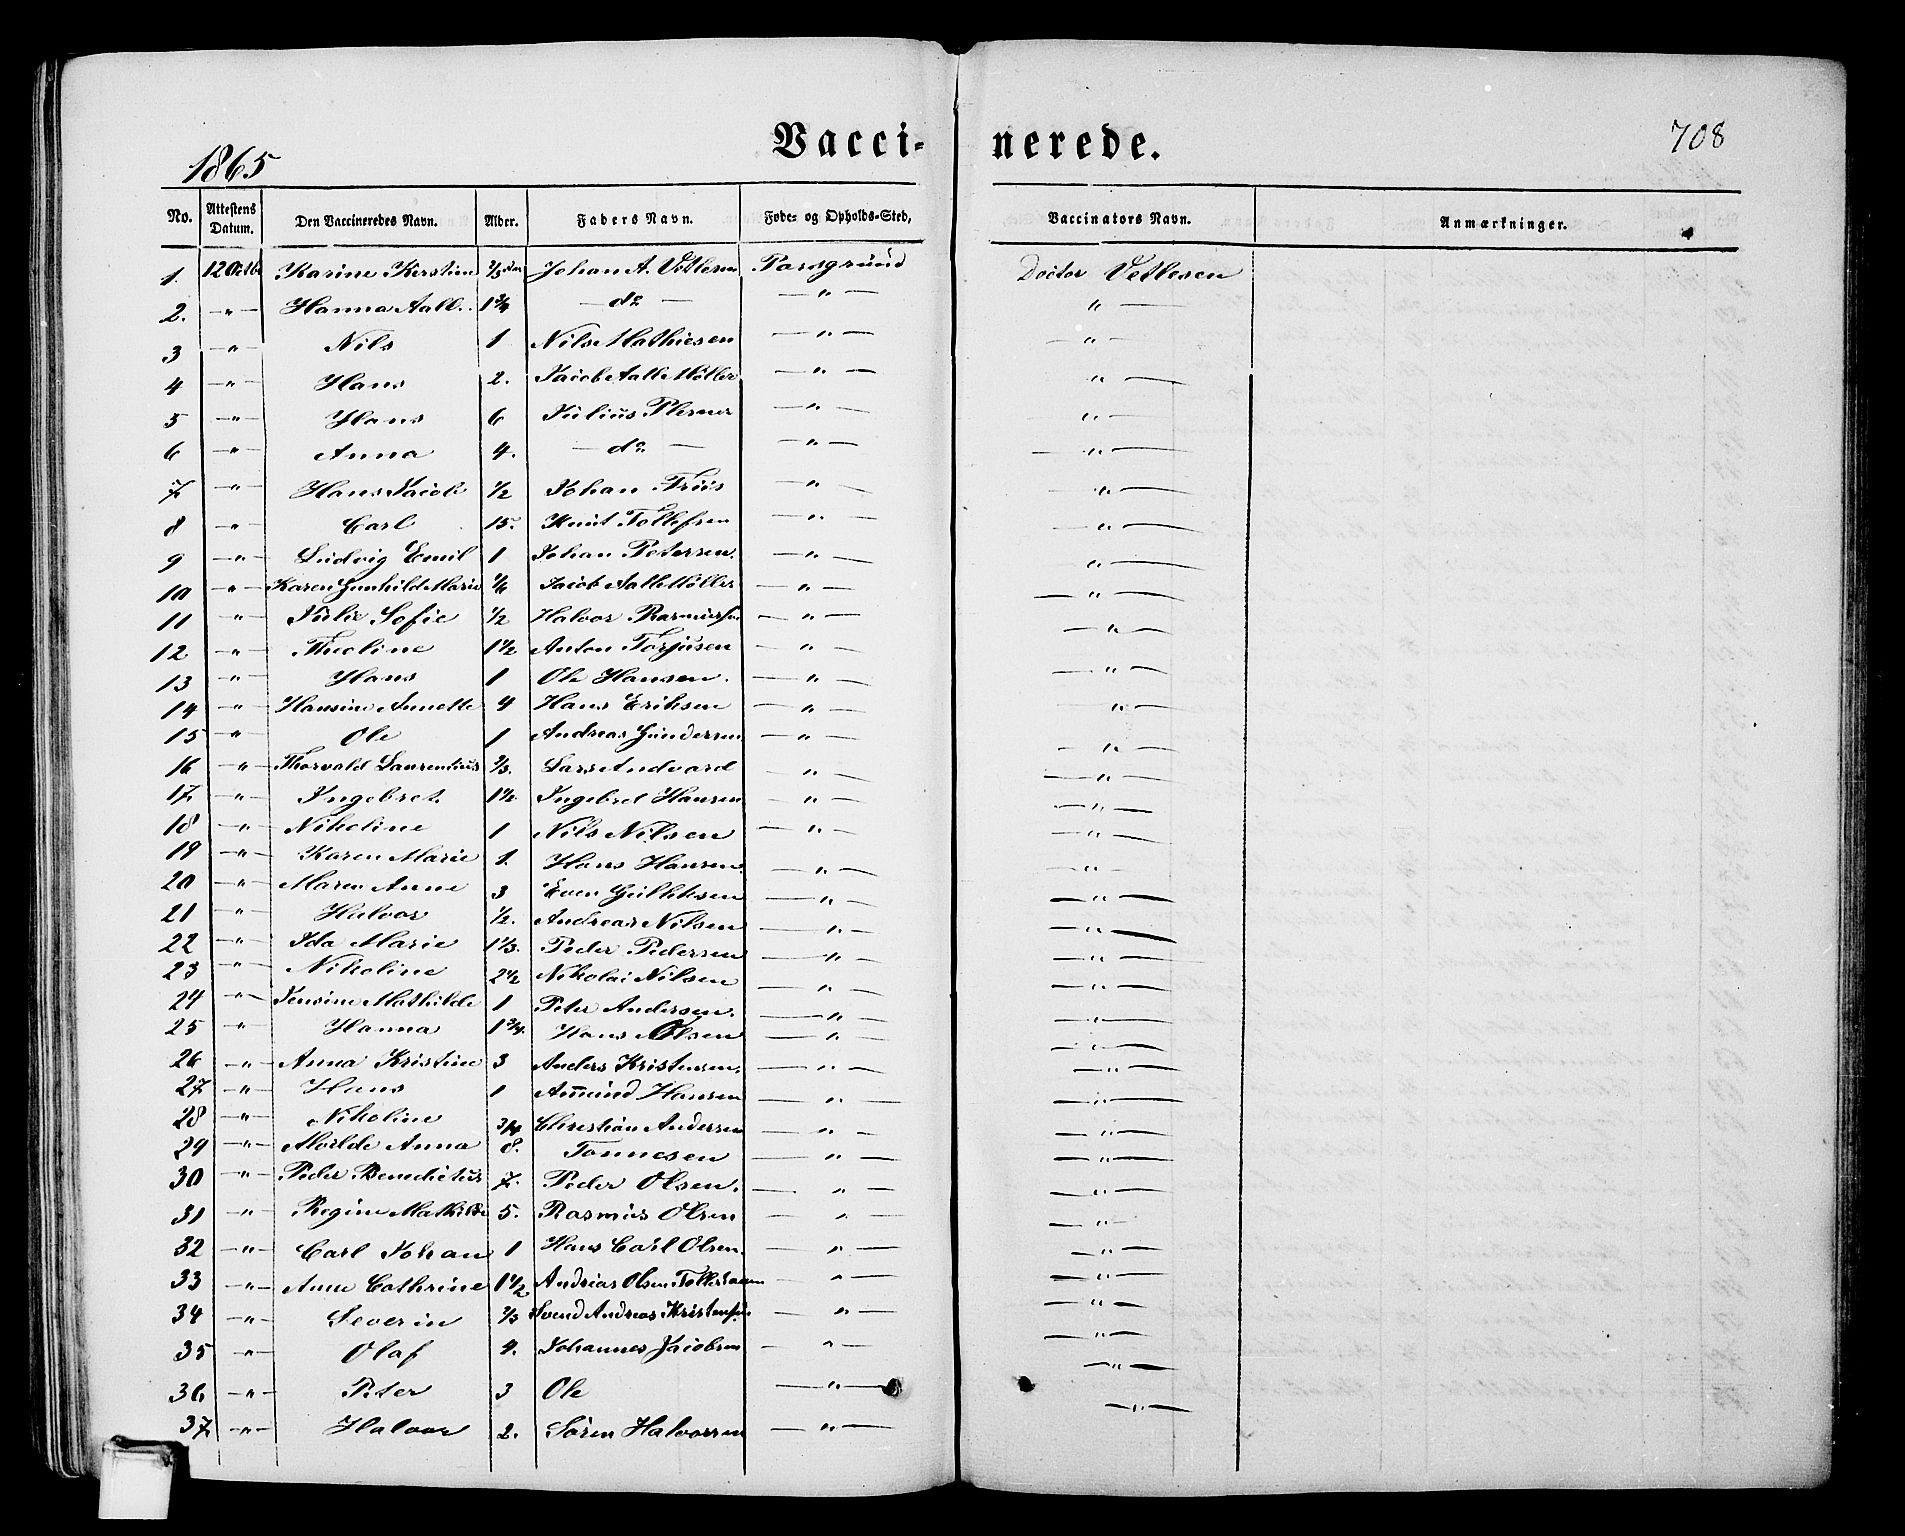 1865 Vacci- nerede. 708
No. Attestens Datum. Den Vaccineredes Navn. Alder. Faders Navn. Føde- og Opholds-Sted, Vaccinators Navn. Anmærkninger.
1. 12 Octb Karine Kirstine Johan A. Vetlesen Porsgrund Doctor Vetlesen
2. —„— Hanna Aall. 1 3/4 — do — —„— „ —
3 —„— Nils 1 Nils Mathiesen —„— — „
4 —„— Hans 2. Jacob Aall Møller —„— „ —
5 —„— Hans 6 Julius Plesner —„— „ —
6 —„— Anna 4. — do — —„— — „ —
7 —„— Hans Jacob 1/2 Johan Friis —„— — „ —
8 —„— Carl 15. Knut Tollefsen —„— — „ —
9 —„— Ludvig Emil 1 Johan Petersen. —„— — „ —
10 —„— Karen Gunhild Marie Jacob Aall Møller —„— — „ —
11 —„— Julie Sofie 1/2 Halvor Rasmussen —„— — „ —
12 —„— Theoline 1 1/2 Anton Torjusen —„— — „ —
13 —„— Hans 1 Ole Hansen. —„— — „ —
14 —„— Hansine Annette 4 Hans Eriksen —„— — „ —
15 —„— Ole 1 Andreas Gundersen —„— — „ —
16 —„— Thorvald Laurentius 2/3. Lars Andvard —„— — „ —
17 —„— Ingebret 1 1/2 Ingebret Hansen —„— — „ —
18 —„— Nikoline 1 Nils Nilsen —„— — „ —
19 —„— Karen Marie 1. Hans Hansen. —„— — „ —
20 —„— Maren Anne 3 Even Gulliksen —„— — „ —
21 —„— Halvor 1/2. Andreas Nilsen —„— — „ —
22 —„— Ida Marie 1 1/3. Peder Pedersen —„— — „ —
23 —„— Nikoline 2 1/2 Nikolai Nilsen —„— — „ —
24 —„— Jensine Mathilde 1 Peter Andersen. —„— — „ —
25 —„— Hanna 1 3/4. Hans Olsen —„— — „ —
26 —„— Anna Kristine 3 Anders Kristensen. —„— — „ —
27 —„— Hans 1 Amund Hansen —„— — „ —
28 —„— Nikoline 3/4 Christian Andersen —„— — „ —
29 —„— Anna 8. Tønnesen —„— — „ —
30 —„— Peder Benedictus 7. Peder Olsen. —„— — „ —
31 —„— Regine Mathilde 5. Rasmus Olsen —„— — „ —
32 —„— Carl Johan 1 Hans Carl Olsen. —„— — „ —
33 —„— Anne Cathrine 1 1/2 Andreas Olsen —„— — „ —
34 —„— Severin 2/3 Svend Andreas Kristensen —„— — „ —
35 —„— Olaf 4. Johannes Jacobsen —„— — „ —
36 —„— Peter 3 Ole —„— — „ —
37 —„— Halvor 2. Søren Halvorsen —„— — „ —